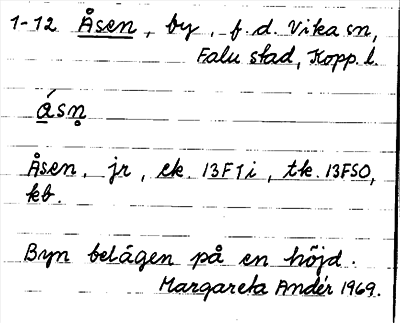 1-12 Åsen, by, f.d. Vika sn,
Falu stad, Kopp. l.
ǻsn̥
Åsen, jr, ek. 13F7i, tk. 13FSO,
kb.
Byn belägen på en höjd.
Margareta Andér 1969.